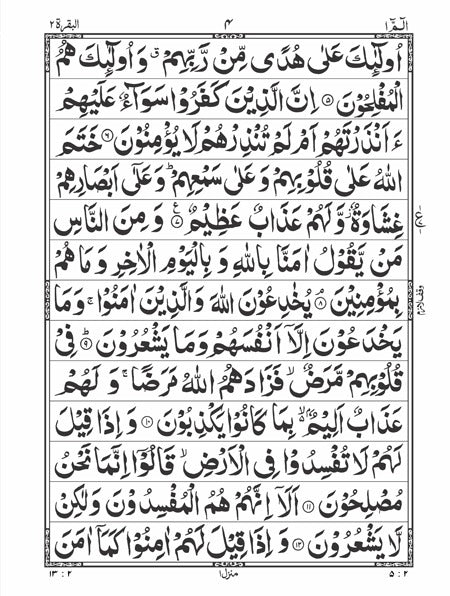 البقرة ٢ ۴ الٓمّٓ ١
اُولٰٓئِكَ عَلٰى هُدًى مِّنْ رَّبِّهِمْ ۗ وَ اُولٰٓئِكَ هُمُ
الْمُفْلِحُوْنَ ﴿۵﴾ اِنَّ الَّذِيْنَ كَفَرُوْا سَوَآءٌ عَلَيْهِمْ
ءَاَنْذَرْتَهُمْ اَمْ لَمْ تُنْذِرْهُمْ لَا يُؤْمِنُوْنَ ﴿۶﴾ خَتَمَ
اللّٰهُ عَلٰى قُلُوْبِهِمْ وَ عَلٰى سَمْعِهِمْ ؕ وَ عَلٰٓى اَبْصَارِهِمْ
غِشَاوَةٌ ؗ وَّ لَهُمْ عَذَابٌ عَظِيْمٌ ﴿۷﴾ ع وَ مِنَ النَّاسِ
مَنْ يَّقُوْلُ اٰمَنَّا بِاللّٰهِ وَ بِالْيَوْمِ الْاٰخِرِ وَ مَا هُمْ
بِمُؤْمِنِيْنَ ﴿۸﴾ يُخٰدِعُوْنَ اللّٰهَ وَ الَّذِيْنَ اٰمَنُوْا ۚ وَ مَا
يَخْدَعُوْنَ اِلَّاۤ اَنْفُسَهُمْ وَ مَا يَشْعُرُوْنَ ﴿۹﴾ ؕ فِيْ
قُلُوْبِهِمْ مَّرَضٌ ۙ فَزَادَهُمُ اللّٰهُ مَرَضًا ۚ وَ لَهُمْ
عَذَابٌ اَلِيْمٌۢ ۙ۬ بِمَا كَانُوْا يَكْذِبُوْنَ ﴿۱۰﴾ وَ اِذَا قِيْلَ
لَهُمْ لَا تُفْسِدُوْا فِي الْاَرْضِ ۙ قَالُوْۤا اِنَّمَا نَحْنُ
مُصْلِحُوْنَ ﴿۱۱﴾ اَلَاۤ اِنَّهُمْ هُمُ الْمُفْسِدُوْنَ وَ لٰكِنْ
لَّا يَشْعُرُوْنَ ﴿۱۲﴾ وَ اِذَا قِيْلَ لَهُمْ اٰمِنُوْا كَمَاۤ اٰمَنَ
۲ : ۱۳ منزل۱ ۲ : ۵